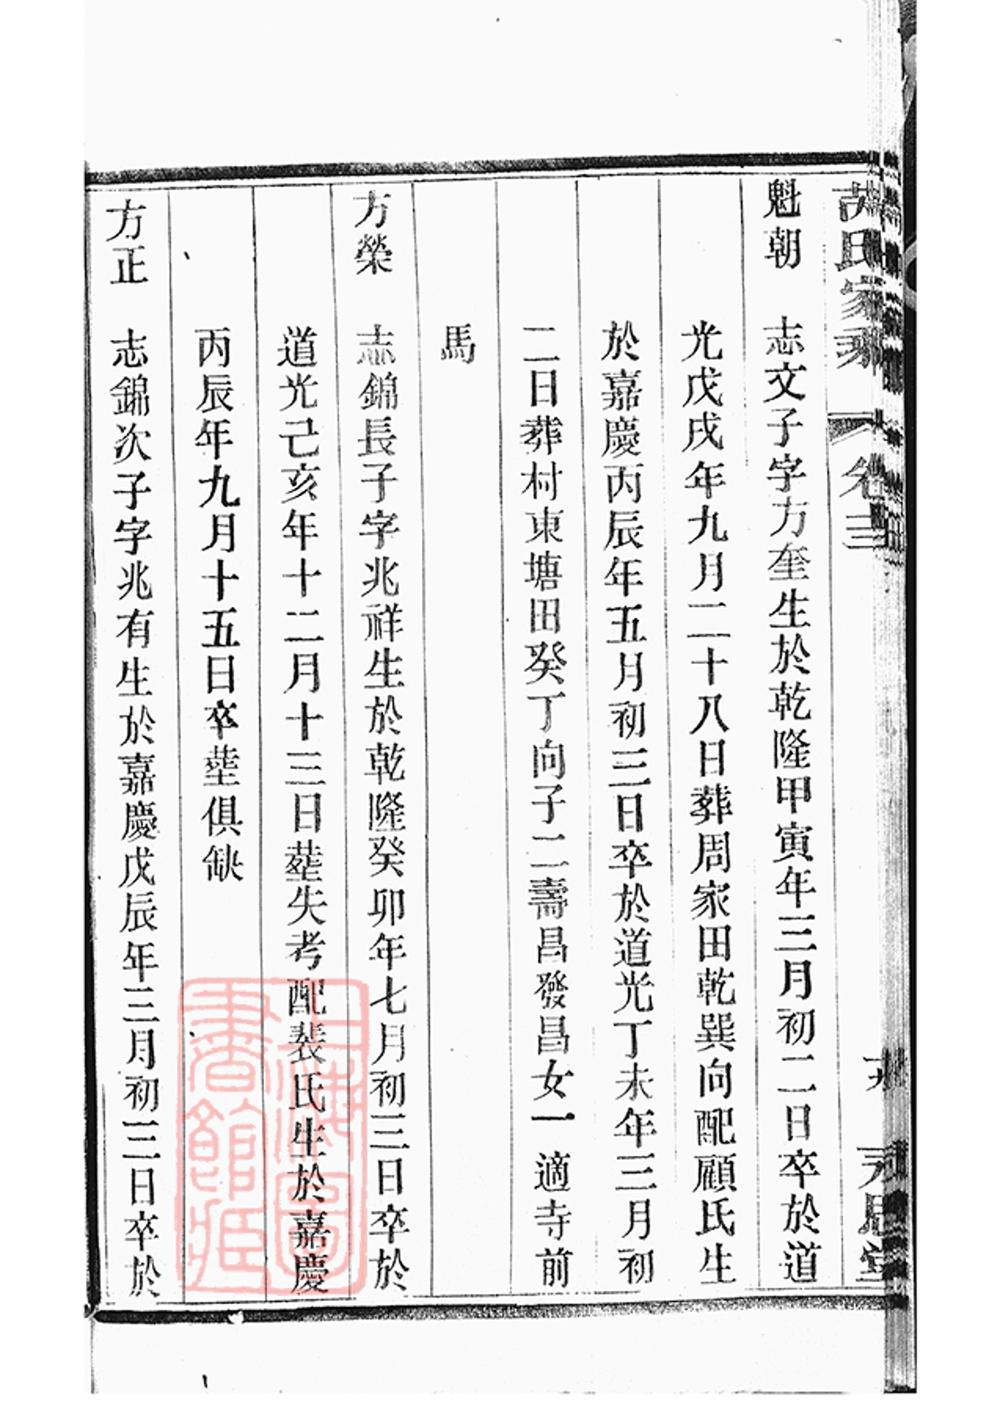 氏家乘 卷三
魁朝 志文子字方奎生於乾隆甲寅年三月初二日卒於道
光戊戌年九月二十八日葬周家田乾巽向配顧氏生
於嘉慶丙辰年五月初三日卒於道光丁未年三月初
二日葬村東塘田癸丁向子二壽昌發昌女一適寺前
馬
方榮 志錦長子字兆祥生於乾隆癸卯年七月初三日卒於
道光己亥年十二月十三日塟失考配裴氏生於嘉慶
丙辰年九月十五日卒塟俱缺
方正 志錦次子字兆有生於嘉慶戊辰年三月初三日卒於
上海圖
書館藏